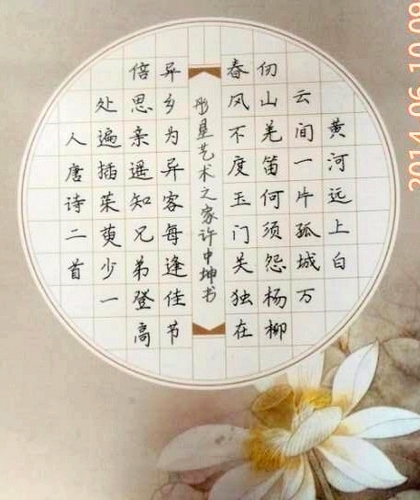 黄河远上白
云间一片孤城万
仞山羌笛何须怨杨柳
春风不度玉门关独在
彤星艺术之家许中坤书
异乡为异客每逢佳节
倍思亲遥知兄弟登高
处遍插茱萸少一
人唐诗二首
2014.06 10:09